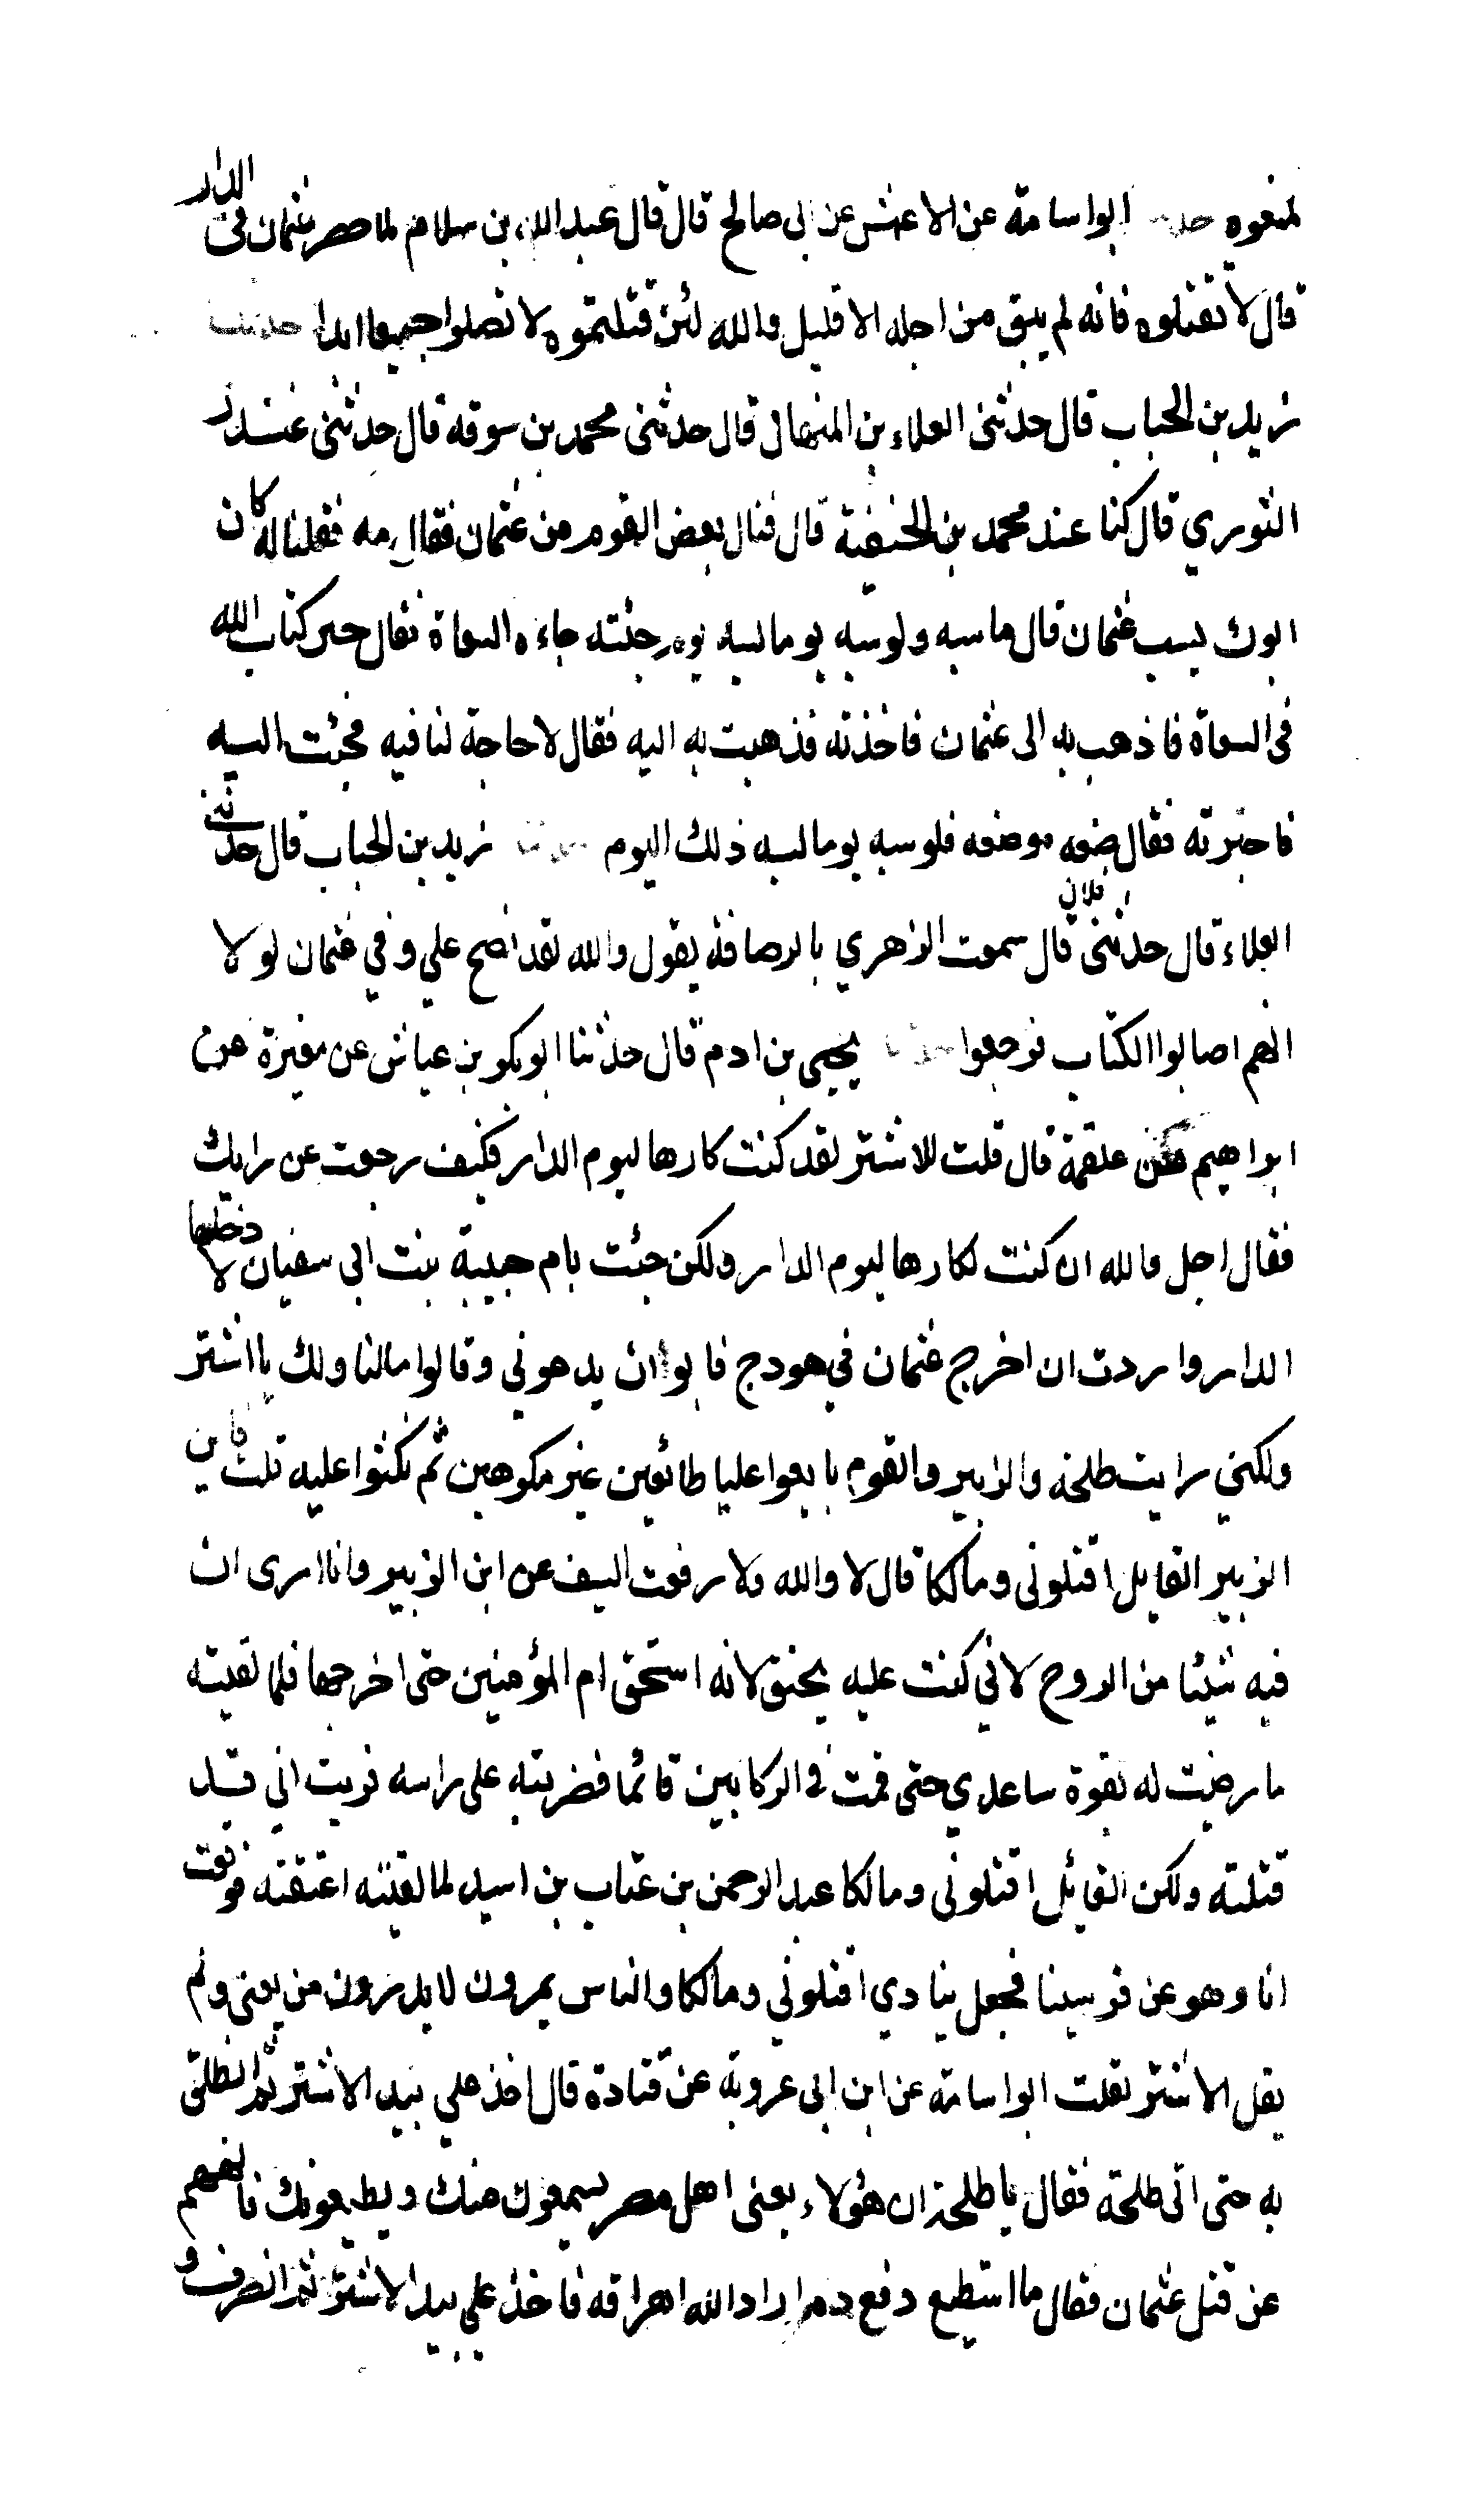 لمنعوه حدثنا ابو اسامة عن الاعمش عن ابى صالح قال قال عبد الله بن سلام لما حصر عثمان فى الدار
قال لا تقتلوه فانه لم يبق من اجله الا قليل والله لئن قتلتموه لا تصلوا جميعا ابدا حدثنا
زيد بن الحباب قال حدثنى العلاء بن المنهال قال حدثنى محمد بن سوقه قال حدثنى منذر
الثوري قال كنا عند محمد بن الحنيفية قال فنال بعض القوم من عثمان فقال مه فقلنا له كان
ابوك يسب عثمان قال ما سبه ولو سبه يوما لسبه يوم جئته جاءه السعاة فقال خذ كتاب الله
فى السعاة فاذهب به الى عثمان فاخذته فذهبت به اليه فقال لا حاجة لنا فيه فجئت اليه
فاخبرته فقال ضعه موضعه فلو سبه يوما لسبه ذلك اليوم حدثنا زيد بن الحباب قال حدثنى
العلاء قال حدثنى فلان قال سمعت الزهري بالرصافة يقول والله لقد نصح علي وفي عثمان لولا
انهم اصابوا الكتاب لرجعوا حدثنا يحيى بن ادم قال حدثنا ابو بكر بن عياش عن مغيرة عن
ابراهيم عن علقمة قال قلت للاشتر لقد كنت كارها ليوم الدار فكيف رجعت عن رايك
فقال اجل والله ان كنت لكارها ليوم الدار ولكن جئت بام حبيبة بنت ابى سفيان لادخلها
الدار واردت ان اخرج عثمان في هودج فابوا ان يدعونى وقالوا مالنا ولك يا اشتر
ولكني رايت طلحة والزبير والقوم بايعوا عليا طائعين غير مكرهين ثم نكثوا عليه قلت فابن
الزبير القايل اقتلونى ومالكا قال لا والله ولا رفعت السيف عن ابن الزبير وانا ارى ان
فيه شيئا من الروح لاني كنت عليه بحنق لانه استخف ام المؤمنين حتى اخرجها فلما لقيته
ما رضيت له بقوة ساعدي حتى قمت فى الركابين قائما فضربته على راسه فريت اني قد
قتلته ولكن القائل اقتلونى ومالكا عبد الرحمن بن عتاب بن اسيد لما لقيته اعتنقته فوقعت
انا وهو عن فرسينا فجعل ينادي اقتلوني ومالكا والناس يمرون لا يدرون من يعنى ولم
يقل الاشتر لقتلت ابو اسامة عن ابن ابى عروبة عن قتادة قال اخذ علي بيد الاشتر ثم انطلق
به حتى اتى طلحة فقال يا طلحة ان هؤلاء يعنى اهل مصر يسمعون منك ويطيعونك فانههم
عن قتل عثمان فقال ما استطيع دفع دم اراد الله اهراقه فاخذ علي بيد الاشتر ثم انصرف و